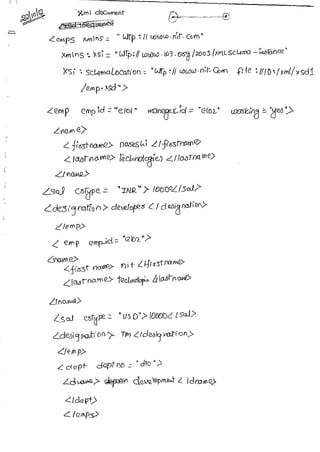 20/10/12
Xml document
<emps xmlns = "http://www.nit.com"
xmlns:xsi = "http://www.w3.org/2001/XMLSchema-instance"
xsi:schemaLocation = "http://www.nit.com file:///D:/xml/xsd1
/emp.xsd">
<emp empid="e101" managerid="e102" working="yes">
<name>
<firstname> nareshi </firstname>
<lastname> Technologies </lastname>
</name>
<sal cstype = "INR"> 1000</sal>
<designation> developer </designation>
</emp>
< emp empid="e102">
<name>
<first name> nit </firstname>
<lastname> technologies </lastname>
</name>
<sal cstype = "USD">10000</sal>
<designation> TM </designation>
</emp>
<dept deptno = "d10">
<dname> development </dname>
</dept>
</emps>